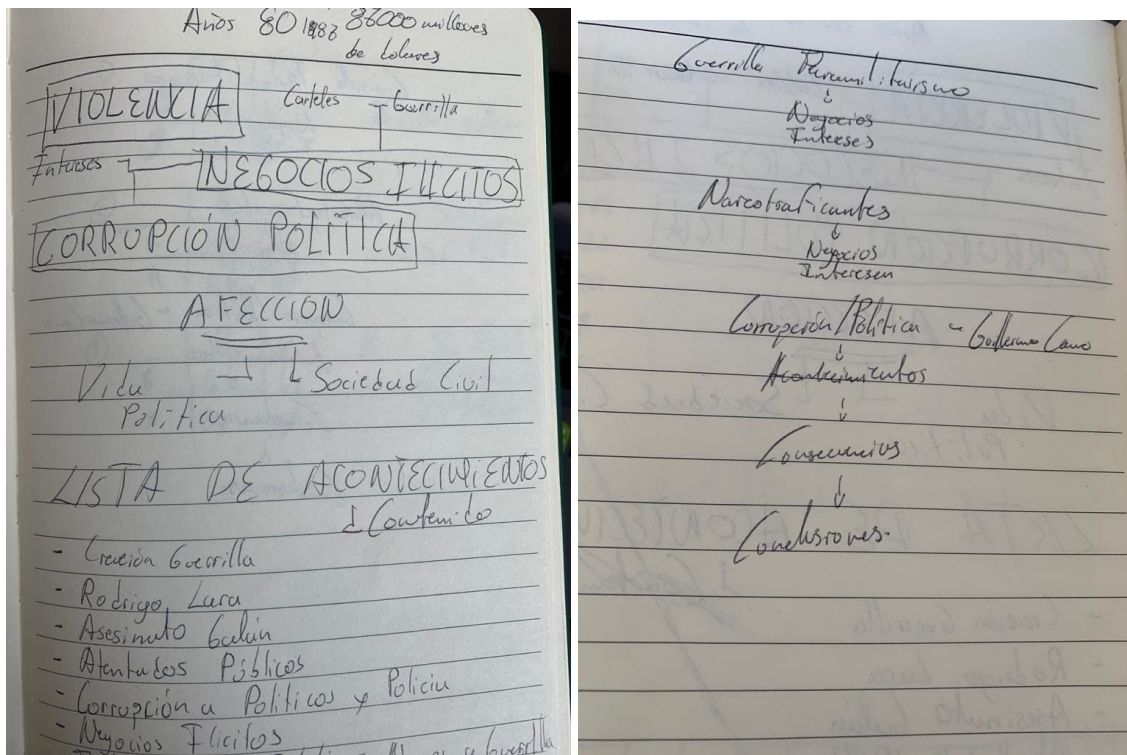 Años 80 1983 86000 millones
de Dolares
VIOLENCIA Carteles Guerrilla
Intereses NEGOCIOS ILICITOS
CORRUPCIÓN POLÍTICA
AFECCION
Vida Sociedad Civil
Politica
LISTA DE ACONTECIMIENTOS
Contenido
- Creación Guerrilla
- Rodrigo Lara
- Asesinato Galán
- Atentados Públicos
- Corrupción a Politicos y Policia
- Negocios Ilicitos
Guerrilla
Guerrilla Paramilitarismo
Negocios
Intereses
Narcotraficantes
Negocios
Interesen
Corrupción/Politica - Guillermo Cano
Acontecimientos
Consecuencias
Conclusiones.